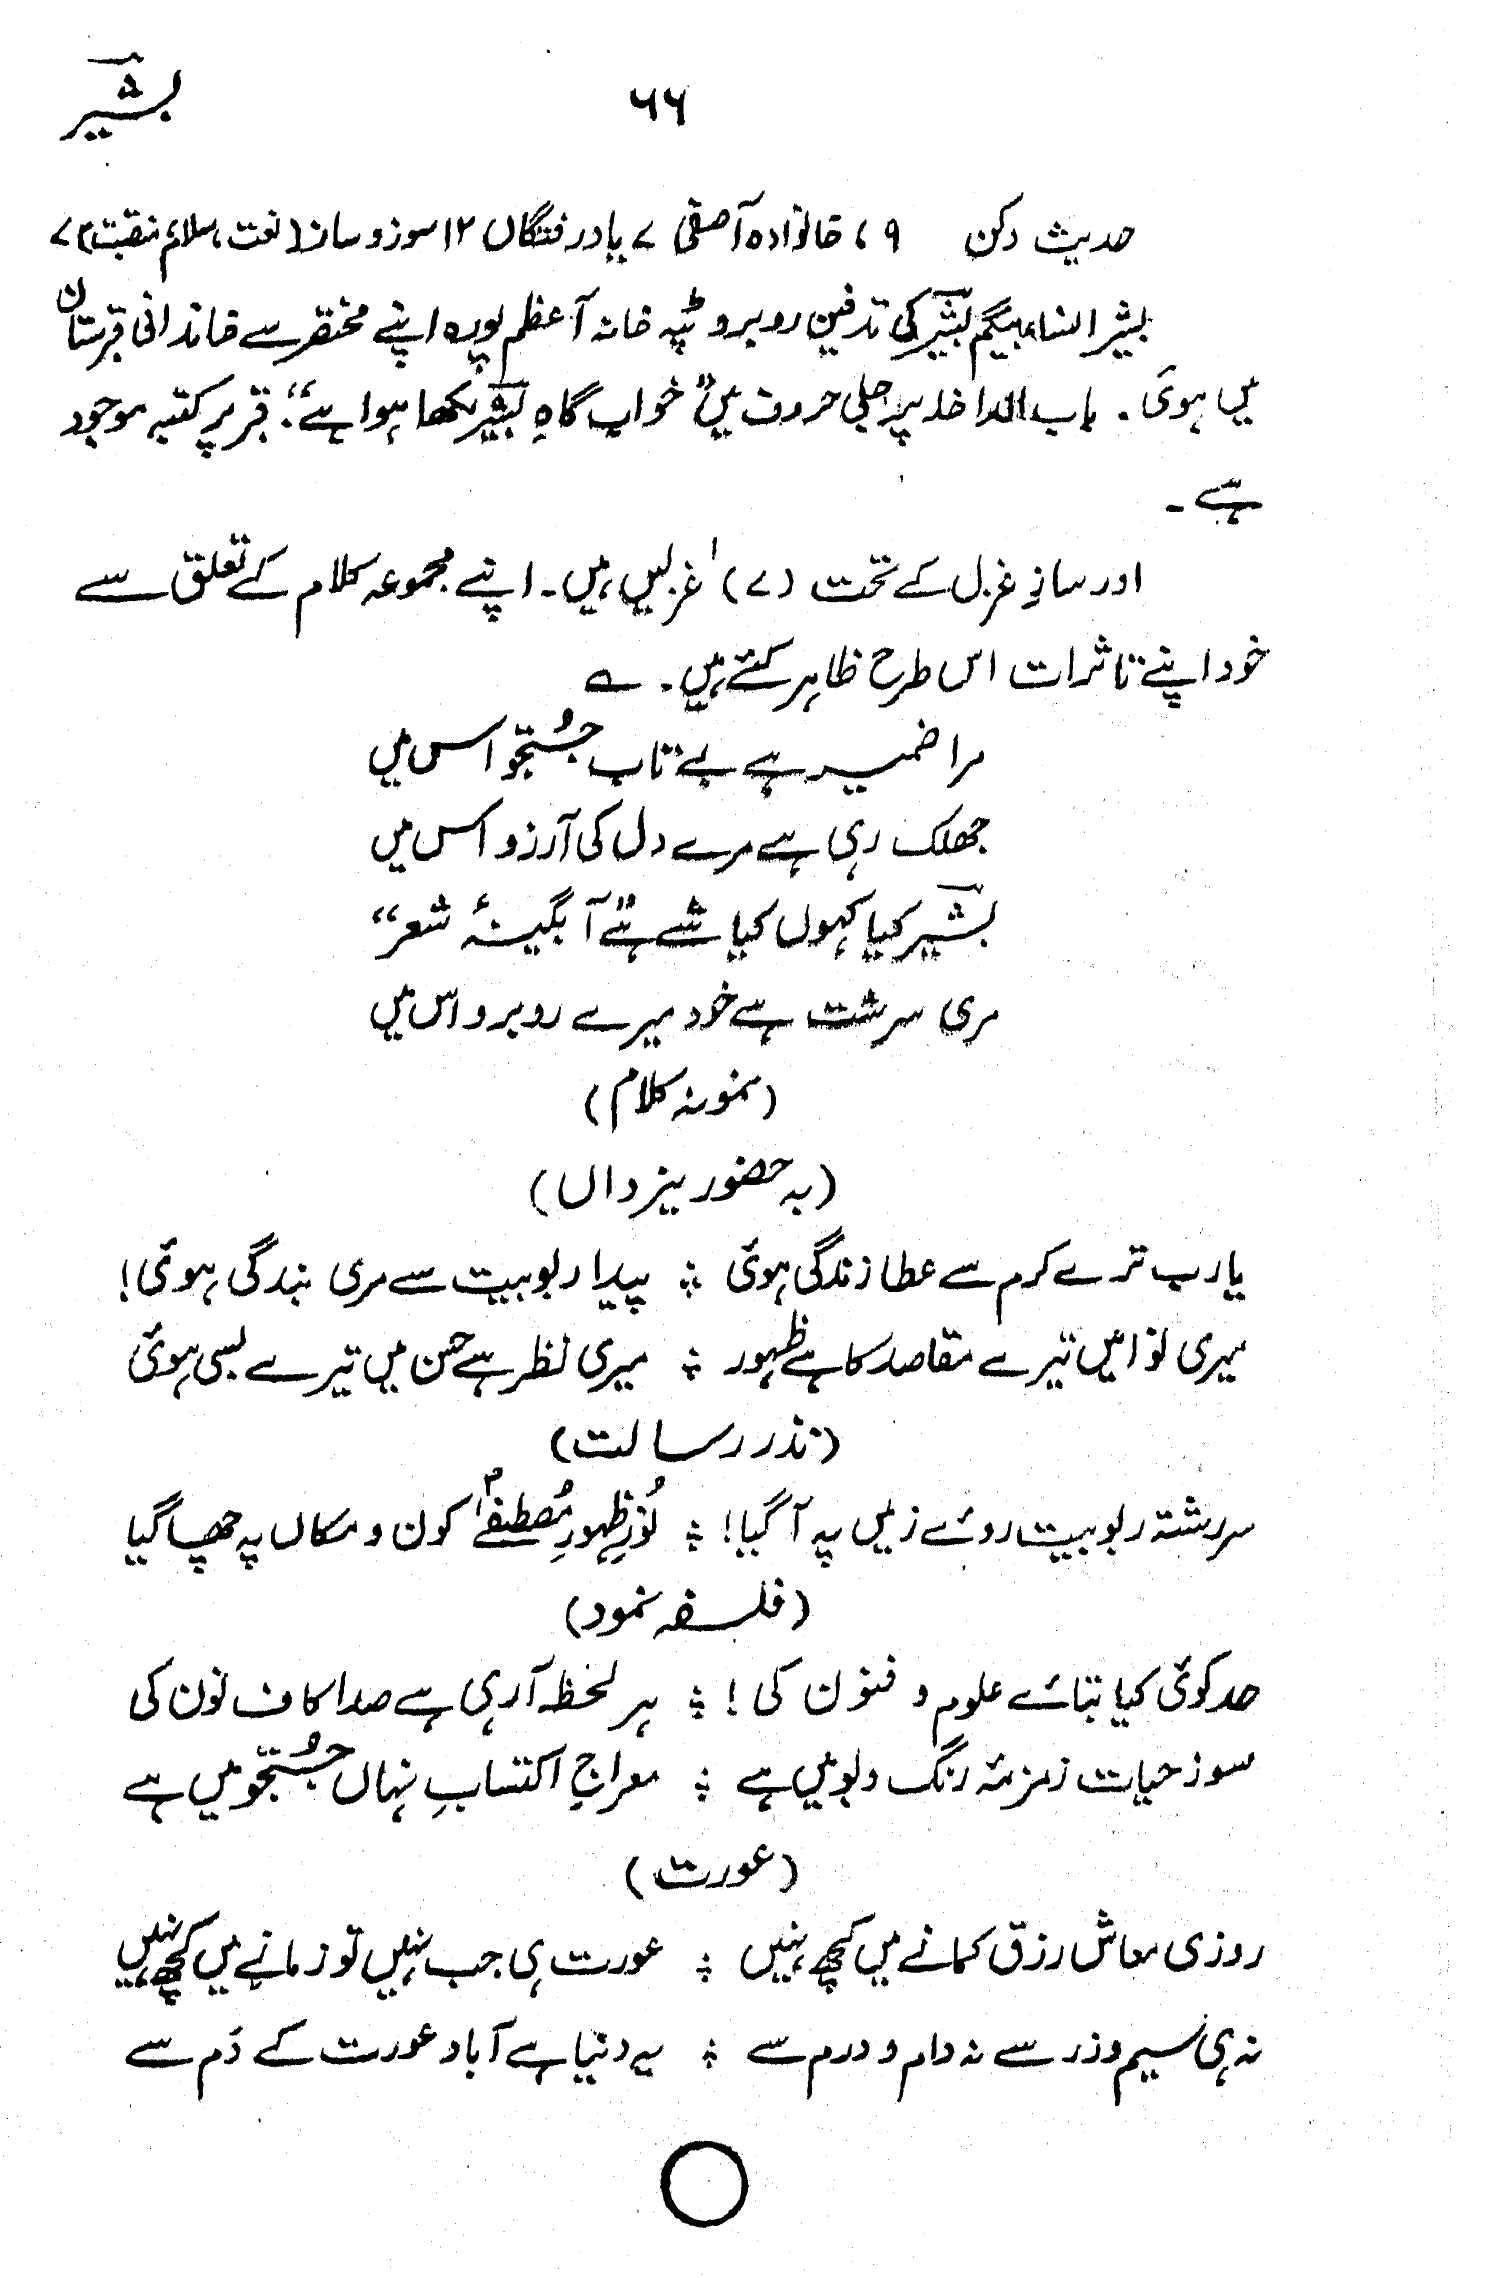 بشیر
۶۶
حدیث دکن ۹، خانوادہ آصفی ۷ یاد رفتگاں ۱۲ سوز و ساز (نعت، سلام، منقبت) ۷
بشیر النساء بیگم بشیر کی تدفین روبرو ٹپہ خانہ آعظم پورہ اپنے مختصر سے خاندانی قبرستان
میں ہوئی۔ باب الداخلہ پر جلی حروف میں "خواب گاہِ بشیر لکھا ہوا ہے"؛ قبر پر کتبہ موجود
ہے۔
اور سازِ غزل کے تحت (۷) غزلیں ہیں۔ اپنے مجموعہ کلام کے تعلق سے
خود اپنے تاثرات اس طرح ظاہر کئے ہیں۔ ؎
مرا ضمیر ہے بے تاب جُستجو اس میں
جھلک رہی ہے مرے دل کی آرزو اس میں
بشیر کیا کہوں کیا شے ہے "آبگینۂ شعر"
مری سرشت ہے خود میرے روبرو اس میں
(نمونہ کلام)
(بہ حضور یزداں)
یارب ترے کرم سے عطا زندگی ہوئی ؞ پیدا ربوبیت سے مری بندگی ہوئی!
میری نوا میں تیرے مقاصد کا ہے ظہور ؞ میری نظر ہے حسن میں تیرے بسی ہوئی
(نذر رسالت)
سررشتہ ربوبیت روئے زمیں پہ آ گیا! ؞ نُورِ ظہورِ مُصطفےٰؐ کون و مکاں پہ چھا گیا
(فلسفہ نمود)
حد کوئی کیا بتائے علوم و فنون کی! ؞ ہر لحظہ آ رہی ہے صدا کاف نون کی
سوز حیات زمزمۂ رنگ و بو میں ہے ؞ معراجِ اکتسابِ نہاں جُستجو میں ہے
(عورت)
روزی معاش رزق کمانے میں کچھ نہیں ؞ عورت ہی جب نہیں تو زمانے میں کچھ نہیں
نہ ہی سیم و زر سے نہ دام و درم سے ؞ یہ دنیا ہے آباد عورت کے دَم سے